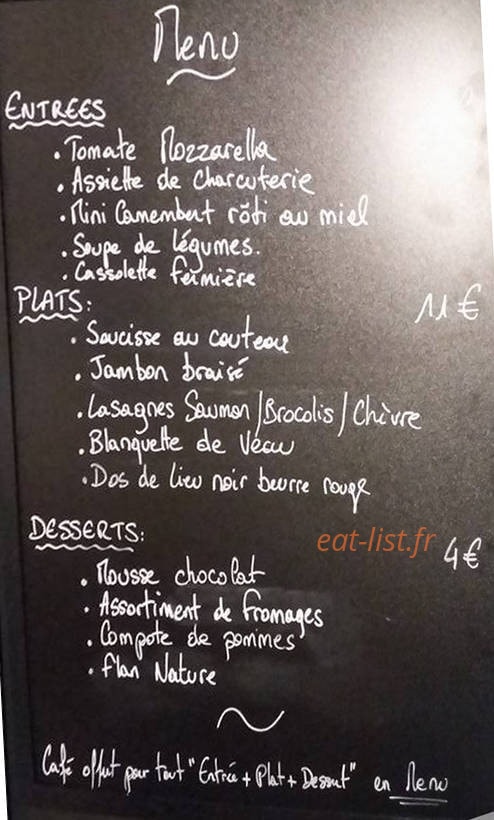 Menu
ENTREES
. Tomate Mozzarella
. Assiette de Charcuterie
. Mini Camembert rôti au miel
. Soupe de légumes.
. Cassolette fermière
PLATS: 11 €
. Saucisse au couteau
. Jambon braisé
. Lasagnes Saumon / Brocolis / Chèvre
. Blanquette de Veau
. Dos de lieu noir beurre rouge
DESSERTS:
eat-list.fr
4 €
. Mousse chocolat
. Assortiment de fromages
. Compote de pommes
. flan Nature
Café offert pour tout "Entrée + Plat + Dessert" en Menu